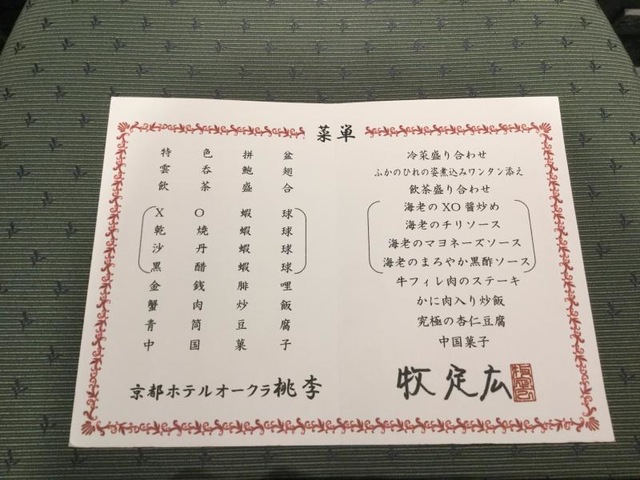 菜単
特色拼盆
雲呑鮑翅
飲茶盛合
XO蝦球
乾焼蝦球
沙丹蝦球
黒醋蝦球
金銭腓哩
蟹肉炒飯
青筒豆腐
中国菓子
京都ホテルオークラ桃李
冷菜盛り合わせ
ふかのひれの姿煮込みワンタン添え
飲茶盛り合わせ
海老のXO醤炒め
海老のチリソース
海老のマヨネーズソース
海老のまろやか黒酢ソース
牛フィレ肉のステーキ
かに肉入り炒飯
究極の杏仁豆腐
中国菓子
牧定広